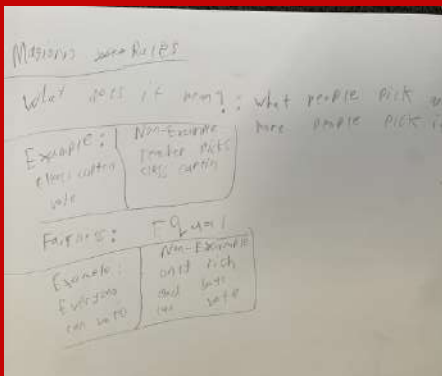 Rules
What does it mean?: what people pick
more people pick
Example:
class captain
vote
Non-Example
Teacher Picks
class captain
Fairness: Equal
Example:
Everyone
can vote
Non-Example
only rich
can vote